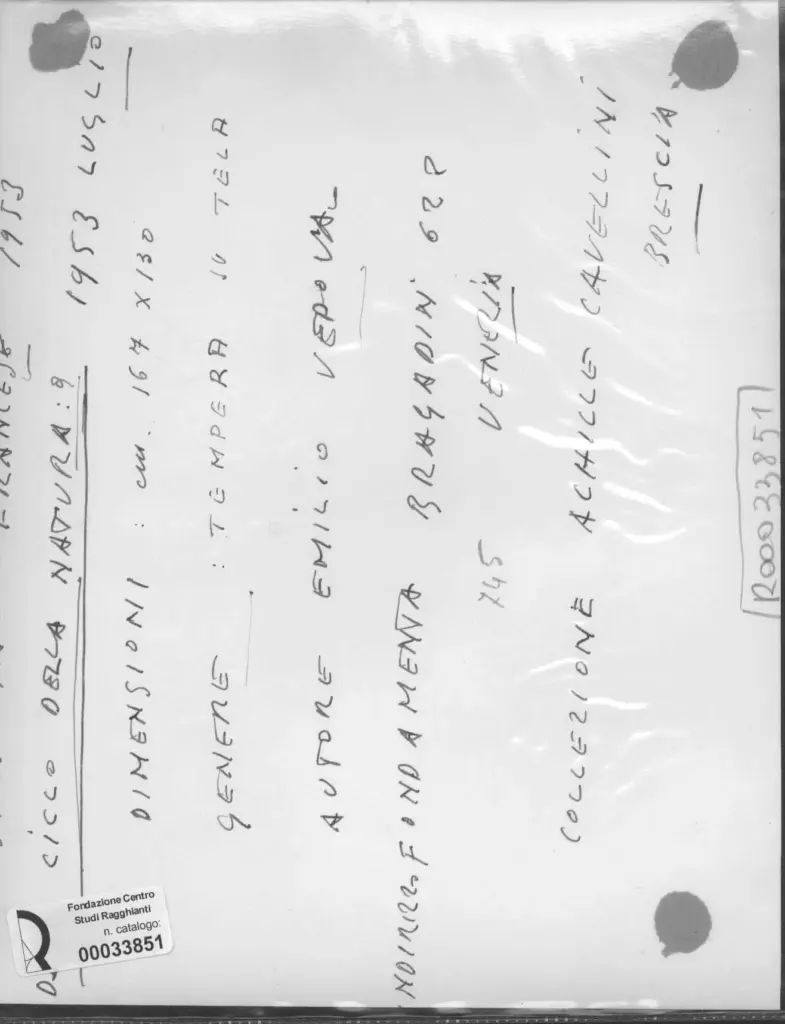 1953
DAL CICLO DELLA NATURA: 9 1953 LUGLIO
DIMENSIONI : cm. 167 X 130
GENERE : TEMPERA SU TELA
AUTORE EMILIO VEDOVA
INDIRIZZO FONDAMENTA BRAGADIN 628
745 VENEZIA
COLLEZIONE ACHILLE CAVELLINI
BRESCIA
R00033851
Fondazione Centro
Studi Ragghianti
n. catalogo:
00033851